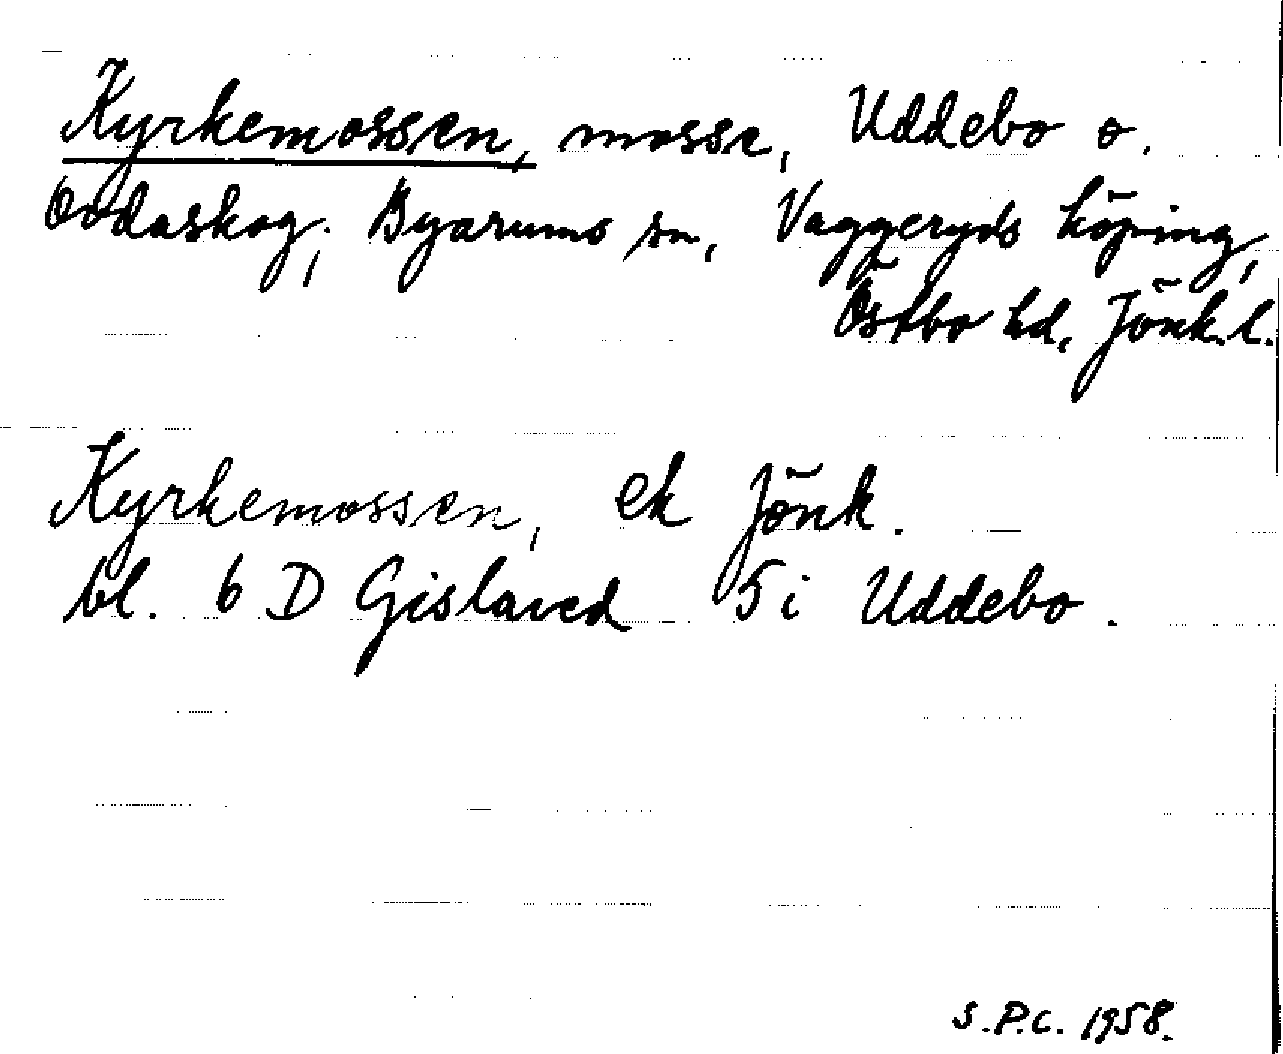 Kyrkemossen, mosse, Uddebo o.
Ovdaskog, Byarums sn, Vaggeryds köping,
Östbo hd, Jönk.l.
Kyrkemossen, ek Jönk.
bl. 6 D Gislaved 5 i Uddebo.
S.P.C. 1958.